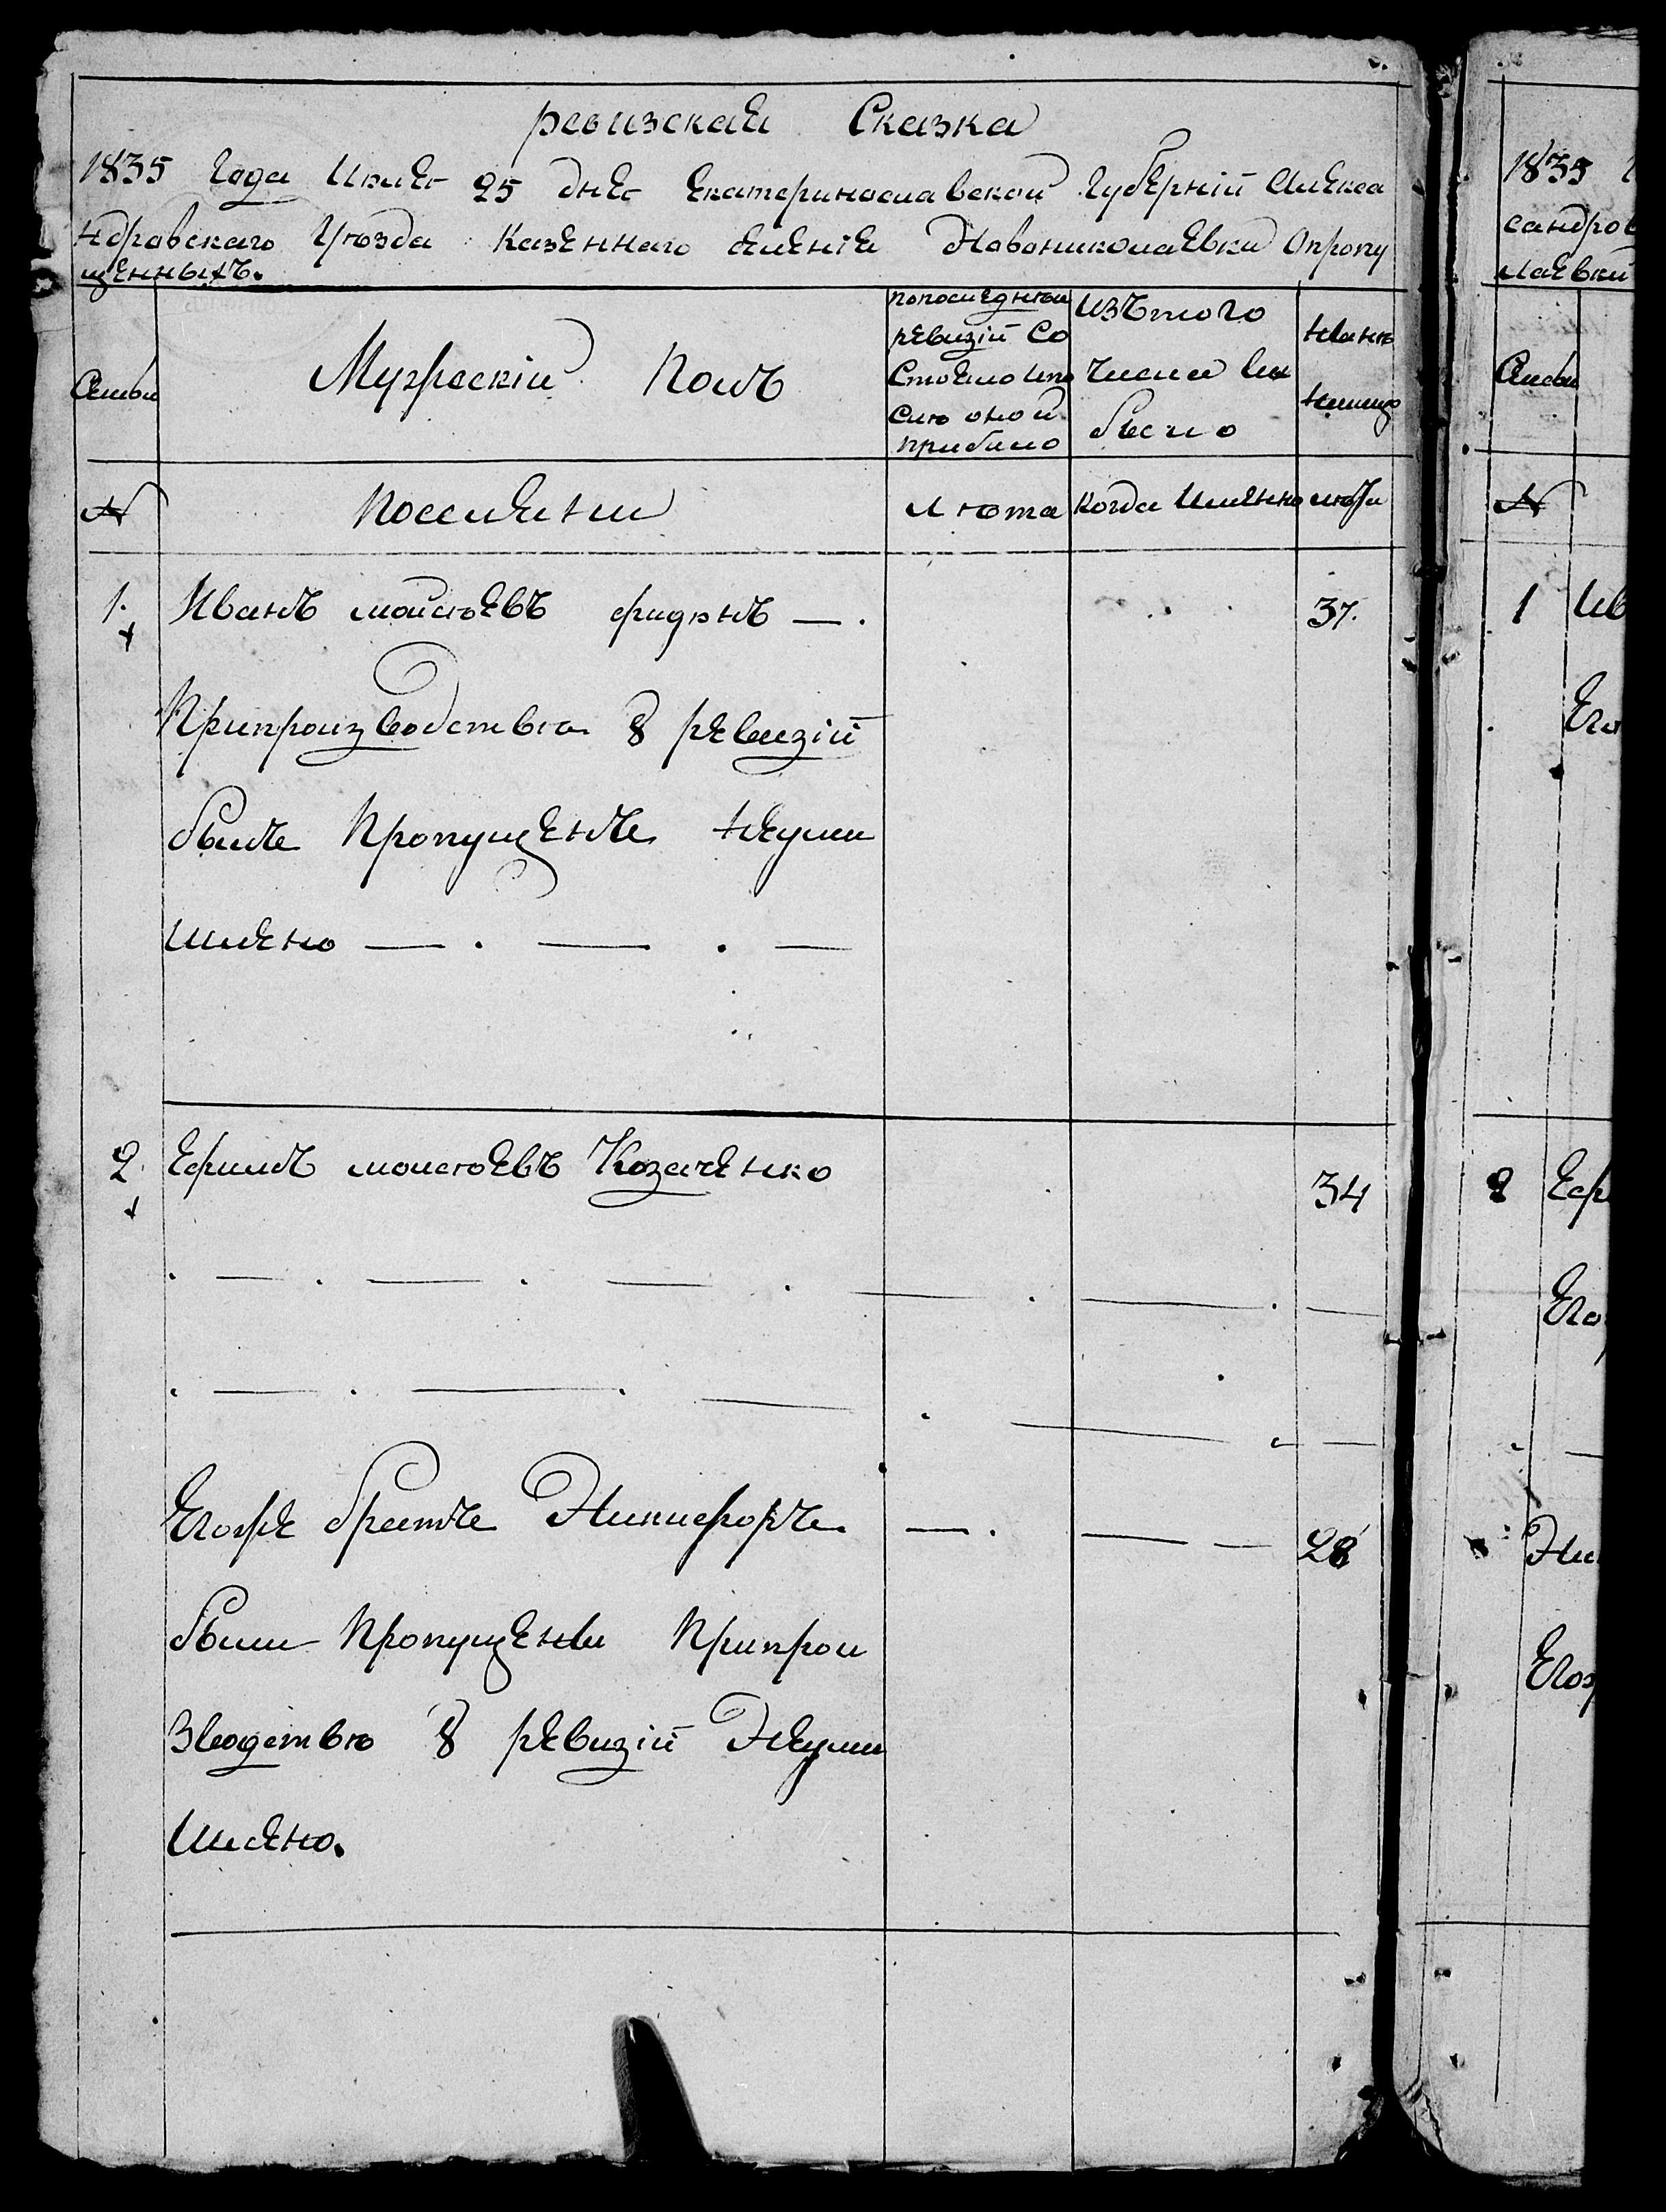 ревизская Сказка
1835 Года Июля 25 дня Екатеринославской Губернiй Алекса
ндровскаго Уѣзда Казеннаго селенiя Новониколаевки Опропу
щенныхъ.
Семьи
Мужескiй Полъ
попоследней
ревизiй Со
Стояло ипо
слѣ оной
прибыло
Изътого
числа вы
было
Нынѣ
налицо
N
Поселяны
Лѣта
Когда Имянно
лѣта
1. Иванъ моисѣевъ —. 37.
Припроизводствѣ 8 ревизiй
былъ Пропущенъ Неумы
шлено — . — . —
2. Ефимъ моисѣевъ Козаченко 34
. — . — . — . — . — . —
. — . — . — . — . —
Егоже братъ Никифоръ — . — — 28
были Пропущены Припрои
зводствѣ 8 ревизiй Неумы
Шлено.
1835
сандров
лаевки
Семьи
N
1 Ив
Его
2 Еф
Его
Ни
Егож